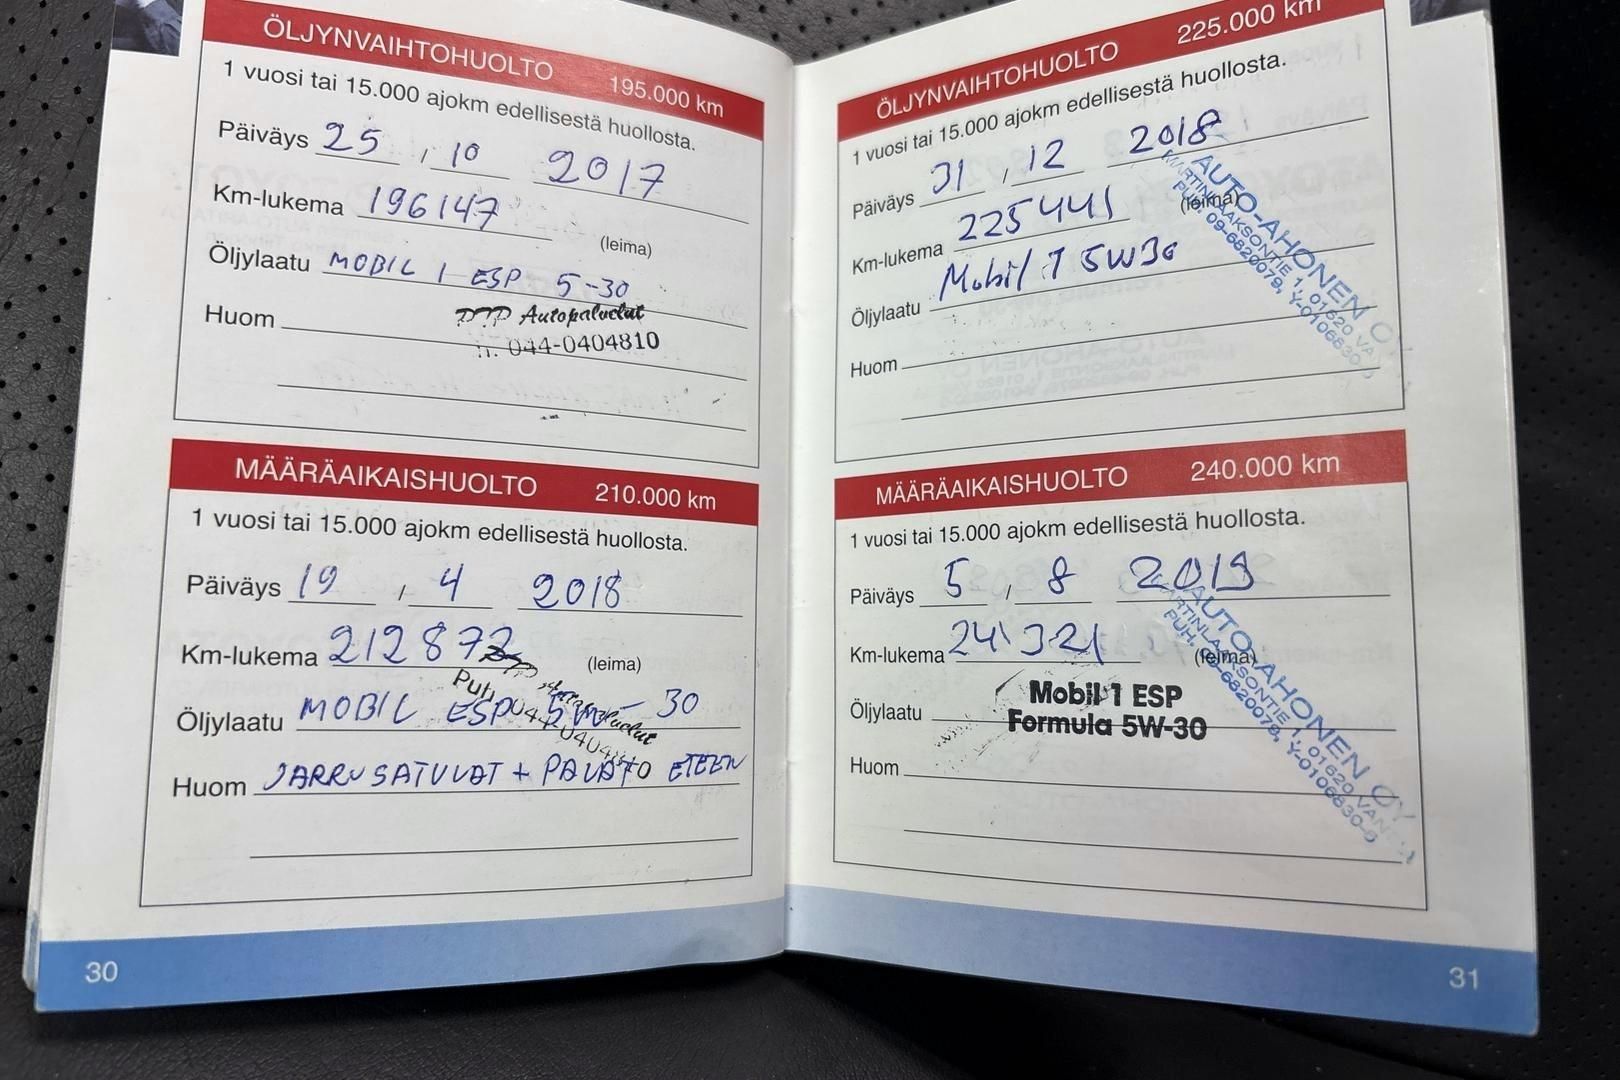 ÖLJYNVAIHTOHUOLTO 195.000 km
1 vuosi tai 15.000 ajokm edellisestä huollosta.
Päiväys 25 , 10 2017
Km-lukema 196147
(leima)
Öljylaatu MOBIL 1 ESP 5-30
PTP Autopalvelut
Huom
044-0404810
MÄÄRÄAIKAISHUOLTO 210.000 km
1 vuosi tai 15.000 ajokm edellisestä huollosta.
Päiväys 19 , 4 2018
Km-lukema 21287
(leima)
Puh
Öljylaatu MOBIL ESP 5W-30
Huom JARRUSATULAT + PALAT O ETEEN
30
ÖLJYNVAIHTOHUOLTO 225.000 km
1 vuosi tai 15.000 ajokm edellisestä huollosta.
Päiväys 31 , 12 2018
Km-lukema 225441
(leima)
Öljylaatu Mobil 1 5W30
Huom
AUTO-AHONEN OY
MARTINLAAKSONTIE 1, 01620
PUH. 09-6820079, Y-0106830-
MÄÄRÄAIKAISHUOLTO 240.000 km
1 vuosi tai 15.000 ajokm edellisestä huollosta.
Päiväys 5 , 8 2019
Km-lukema 241321
(leima)
Öljylaatu Mobil 1 ESP
Formula 5W-30
Huom
AUTO-AHONEN OY
MARTINLAAKSONTIE 1, 01620
PUH. 09-6820079, Y-0106830-
31